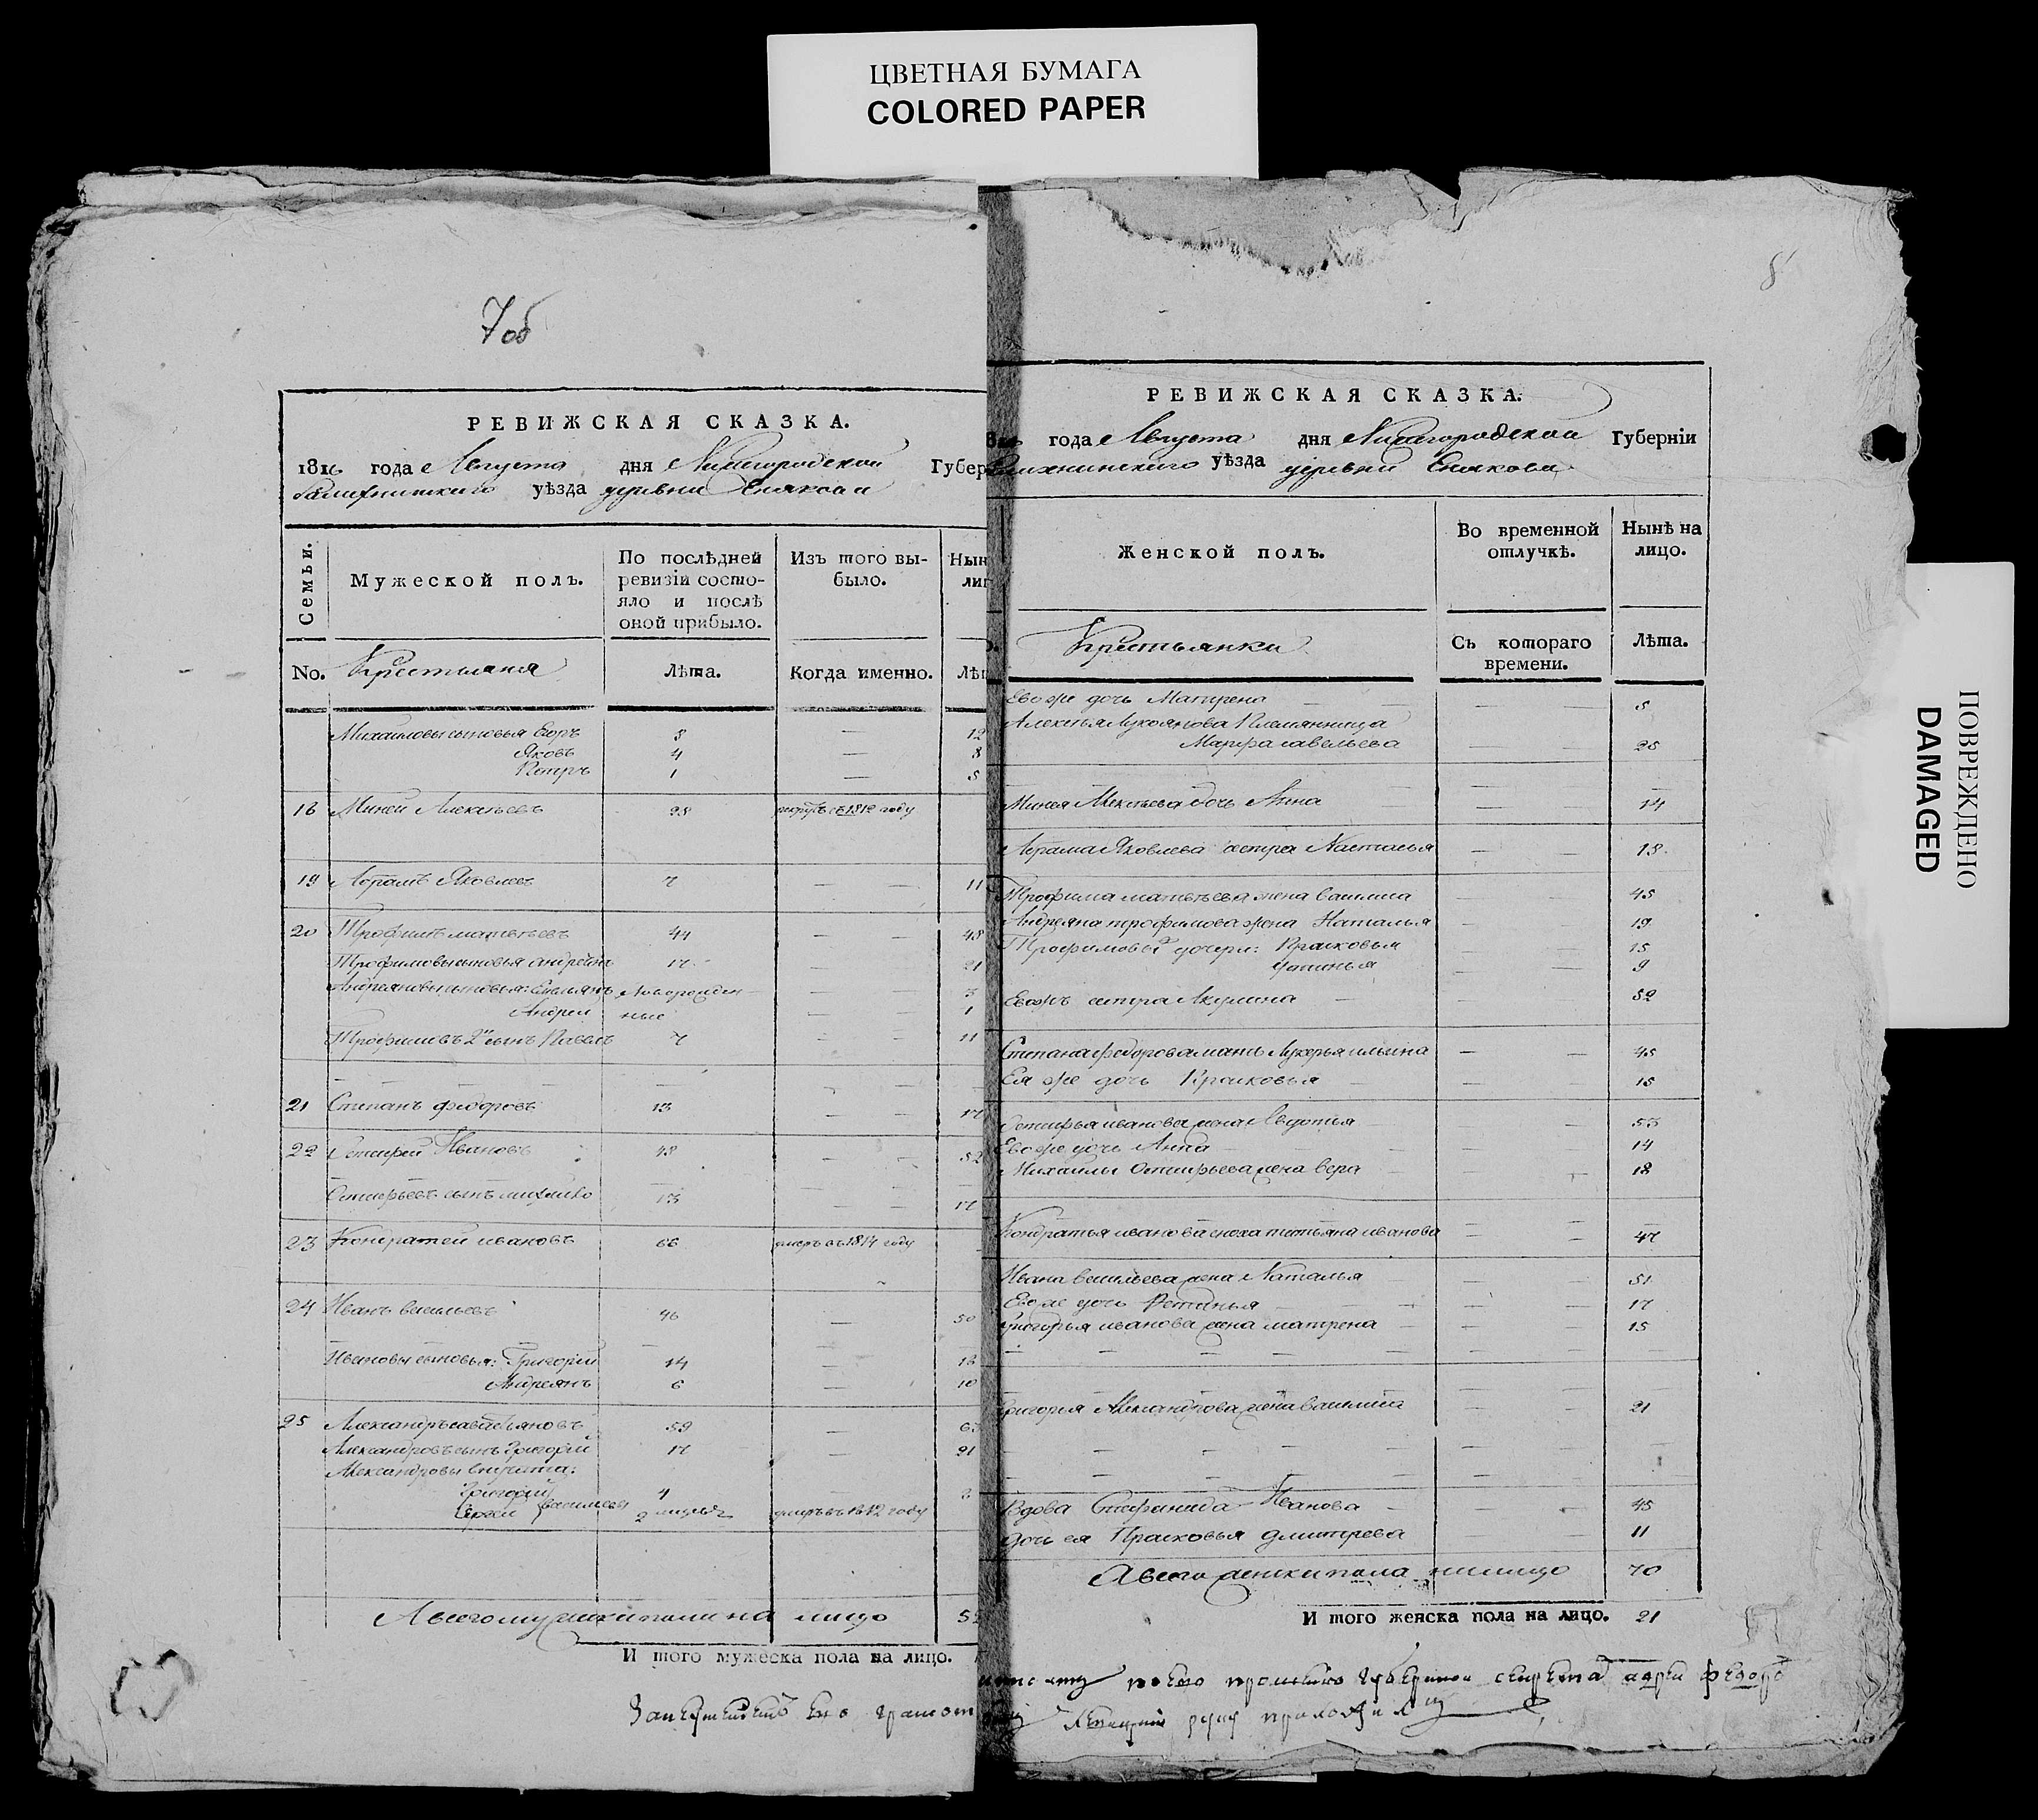 ЦВЕТНАЯ БУМАГА
COLORED PAPER
7об
РЕВИЖСКАЯ СКАЗКА.
1816 года Августа дня Нижегородской Губер
уѣзда деревни
Семьи.
Мужеской полъ.
По послѣдней ревизіи состо-
яло и послѣ
оной прибыло.
Изъ того вы-
было.
Нын
лиц
No. Крестьяня
Лѣта.
Когда именно.
Лѣт
Михаиловы сыновья Егоръ 8 — 12
Яковъ 4 — 8
Петръ 1 — 5
18 Миней Алексѣевъ 28 въ 1812 году
19 Абрамъ Яковлевъ 7 — — 11
20 Трофимъ Матвѣевъ 44 — — 48
Трофимовы сыновья Андреянъ 17 — 21
Андреяновы сыновья: Емельянъ Новорожден — — 3
Андрей ные — — 1
Трофимовъ 2й сынъ Павелъ 7 — — 11
21 Степанъ Федоровъ 13 — — 17
22 Остафей Ивановъ 48 — — 52
Остафьевъ сынъ Михайло 13 — — 17
23 Кондратей Ивановъ 66 умеръ въ 1814 году
24 Иванъ Васильевъ 46 — 50
Ивановы сыновья: Григорей 14 — 18
Андреянъ 6 — 10
25 Александръ 59 — 63
Александровъ сынъ Григорей 17 — 21
Александровы внучата:
Григорей 4 — 8
Сергей Васильевы 2 умеръ въ 1812 году
А всего мужска пола на лицо 52
И того мужеска пола на лицо.
8
РЕВИЖСКАЯ СКАЗКА.
года Августа дня Нижегородской Губерніи
уѣзда деревни
Женской полъ.
Во временной
отлучкѣ.
Нынѣ на
лицо.
Крестьянки
Съ котораго
времени.
Лѣта.
Ево же дочь Матрена — — 8
Алексѣя Лукоянова племянница
Марфа Савельева — — 25
Минея Алексѣева дочь Анна — — 14
Абрама Яковлева сестра Настасья — — 18
Трофима Матвѣева жена Василиса — — 45
Андреяна Трофимова жена Наталья — 19
Трофимовы дочери: Прасковья — 15
Устинья — — 9
Евожъ сестра Акулина — — 52
Степана Федорова мать Лукерья Ильина — — 45
Ея же дочь Прасковья — — 15
Остафья Иванова жена Авдотья — 53
Ево же дочь Анна — — 14
Михаилы Остафьева жена Вера — — 18
Кондратья Иванова сноха Татьяна Иванова — — 47
Ивана Васильева жена Наталья — — 51
Ево же дочь Фетинья — — 17
Григорья Иванова жена Матрена — — 15
Григорья Александрова жена Василиса — — 21
Вдова Стефанида Иванова — — 45
Дочь ея Прасковья Дмитрева — — 11
А всего женска пола на лицо 70
И того женска пола на лицо. 21
руку приложилъ
ПОВРЕЖДЕНО
DAMAGED